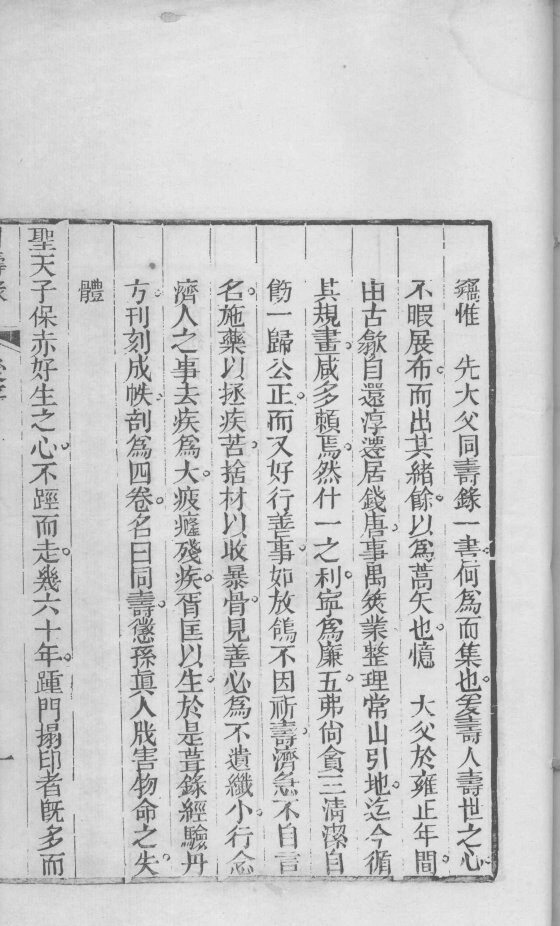 竊惟　先大父同壽錄一書。何為而集也。爰壽人壽世之心。
不暇展布。而出其緒餘。以為蒿矢也。憶　大父於雍正年間。
由古歙自還淳遷居錢唐。事禺筴業。整理常山引地。迄今循
其規畫。咸多賴焉。然什一之利。寧為廉五。弗尙貪三。清潔自
飭。一歸公正。而又好行善事。如放鴿不因祈壽。濟急不自言
名。施藥以拯疾苦。捨材以收暴骨。見善必為。不遺纖小。行念
濟人之事。去疾為大。疲癃殘疾。胥匡以生。於是葺錄經驗丹
方。刊刻成帙。剖為四卷。名曰同壽。懲孫眞人戕害物命之失。
體
聖天子保赤好生之心。不踁而走。幾六十年。踵門搨印者旣多。而
一